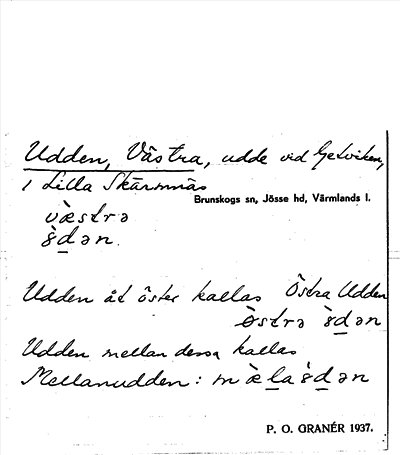 Udden, Västra, udde vid Getviken,
i Lilla Skärmnäs
Brunskogs sn, Jösse hd, Värmlands l.
væ̀strə
ùdən.
Udden åt öster kallas Östra Udden
ö̀strə ùdən
Udden mellan dessa kallas
Mellanudden: mæ̀laùdən
P. O. GRANÉR 1937.